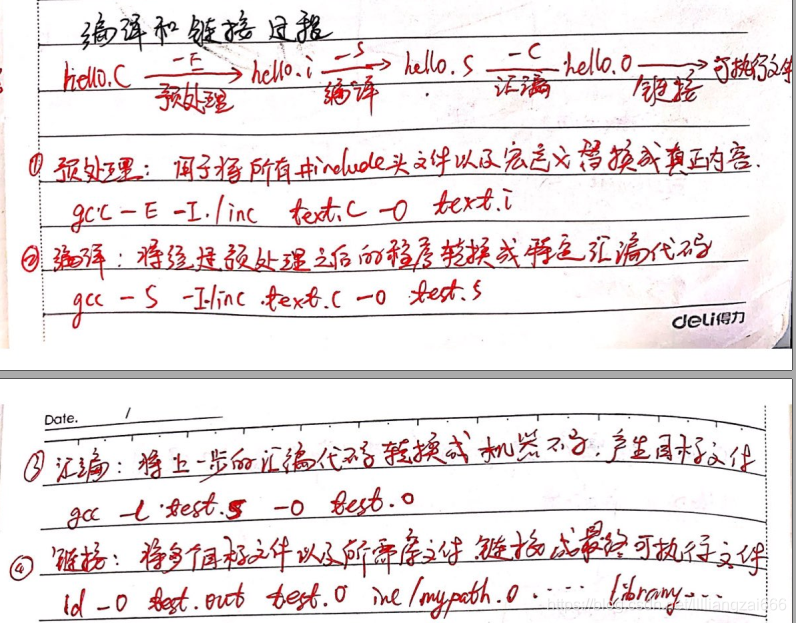 编译和链接过程
hello.C —-E→ hello.i —-S→ hello.S —-C→ hello.o ——→ 可执行文件
预处理 编译 汇编 链接
① 预处理: 用于将所有#include头文件以及宏定义替换成真正内容.
gcc -E -I./inc text.C -o text.i
② 编译: 将经过预处理之后的程序转换成特定汇编代码
gcc -S -I./inc text.c -o test.s
deli得力
Date. /
③ 汇编: 将上一步的汇编代码转换成机器码, 产生目标文件
gcc -c test.s -o test.o
④ 链接: 将多个目标文件以及所需库文件链接成最终可执行文件
ld -o test.out test.o inc/mypath.o ····· library...